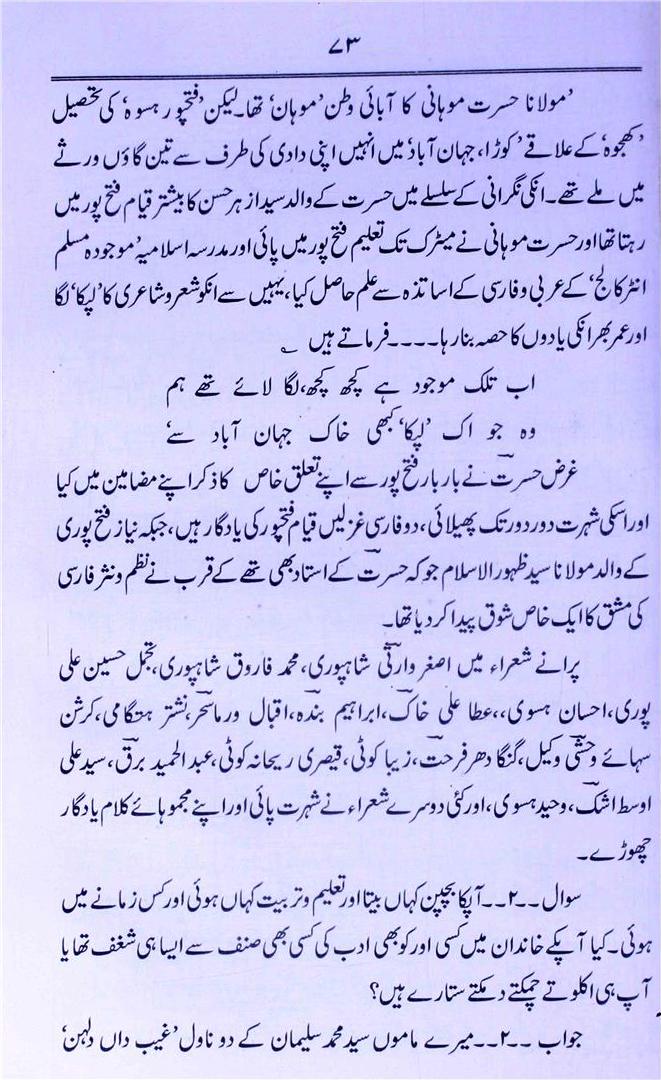 ۷۳
’مولانا حسرت موہانی کا آبائی وطن ’موہان‘ تھا۔ لیکن ’فتحپور ہسوہ‘ کی تحصیل
’کھجوہ‘ کے علاقے ’کوڑا، جہان آباد‘ میں انہیں اپنی دادی کی طرف سے تین گاؤں ورثے
میں ملے تھے۔ انکی نگرانی کے سلسلے میں حسرت کے والد سید ازہر حسن کا بیشتر قیام فتح پور میں
رہتا تھا اور حسرت موہانی نے میٹرک تک تعلیم فتح پور میں پائی اور مدرسہ اسلامیہ ’موجودہ مسلم
انٹر کالج‘ کے عربی و فارسی کے اساتذہ سے علم حاصل کیا، یہیں سے انکو شعر و شاعری کا ’لپکا‘ لگا
اور عمر بھر انکی یادوں کا حصہ بنا رہا۔۔۔۔فرماتے ہیں ؎
اب تلک موجود ہے کچھ کچھ، لگا لائے تھے ہم
وہ جو اک ’لپکا‘ کبھی خاک جہان آباد سے‘
غرض حسرتؔ نے بار بار فتح پور سے اپنے تعلق خاص کا ذکر اپنے مضامین میں کیا
اور اسکی شہرت دور دور تک پھیلائی، دو فارسی غزلیں قیام فتحپور کی یادگار ہیں، جبکہ نیاز فتح پوری
کے والد مولانا سید ظہور الاسلام جو کہ حسرتؔ کے استاد بھی تھے کے قرب نے نظم و نثر فارسی
کی مشق کا ایک خاص شوق پیدا کر دیا تھا۔
پرانے شعراء میں اصغر وارثیؔ شاہپوری، محمد فاروق شاہپوری، تجمل حسین علی
پوری، احسان ہسوی،،عطا علی خاکؔ، ابراہیم بندہؔ، اقبال ورما سحرؔ، نشتر ہتگامی، کرشن
سہائے وحشیؔ وکیل، گنگا دھر فرحتؔ، زیبا کوٹی، قیصری ریحانہ کوٹی، عبد الحمید برقؔ، سید علی
اوسط اشکؔ، وحید ہسوی، اور کئی دوسرے شعراء نے شہرت پائی اور اپنے مجموہائے کلام یادگار
چھوڑے۔
سوال ۔۔۲۔۔آپکا بچپن کہاں بیتا اور تعلیم و تربیت کہاں ہوئی اور کس زمانے میں
ہوئی۔ کیا آپکے خاندان میں کسی اور کو بھی ادب کی کسی بھی صنف سے ایسا ہی شغف تھا یا
آپ ہی اکلوتے چمکتے دمکتے ستارے ہیں؟
جواب ۔۔۲۔۔میرے ماموں سید محمد سلیمان کے دو ناول ’غیب داں دلہن‘